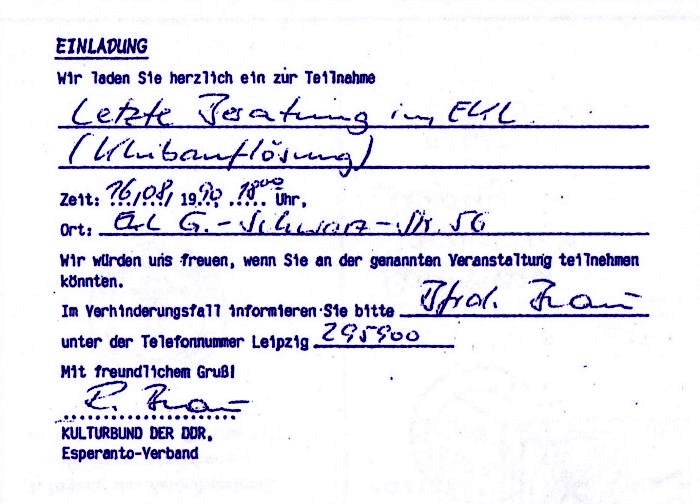 EINLADUNG
Wir laden Sie herzlich ein zur Teilnahme
Letzte Beratung im EKL
(Klubauflösung)
Zeit: 16/08/ 1990, 18⁰⁰ Uhr,
Ort: EKL G.-Schwarz-Str. 56
Wir würden uns freuen, wenn Sie an der genannten Veranstaltung teilnehmen
könnten.
Im Verhinderungsfall informieren Sie bitte Bfrd.
unter der Telefonnummer Leipzig 295900
Mit freundlichem Gruß!
R.
KULTURBUND DER DDR,
Esperanto-Verband